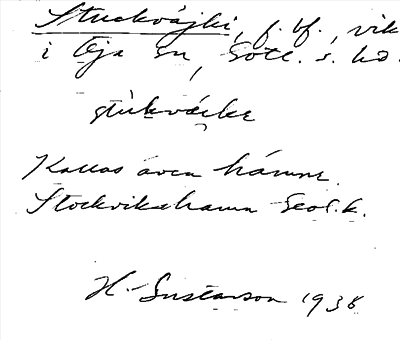 Stuckvájki, f. bf., vik
i Öja sn, Gotl. s. hd.
stùkvácke
Kallas även hámnę.
Stockvikahamn Geol.k.
H. Gustavson 1938